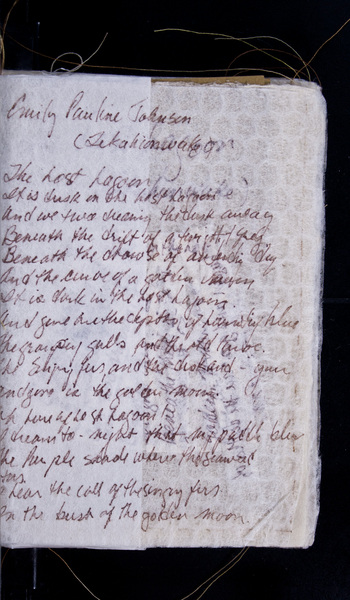 Emily Pauline Johnson
(Tekahionwake)
The Lost Lagoon
It is dusk on the Lost Lagoon
And we two dreaming the dusk away
Beneath the drift of a twilight gray
Beneath the drowse of an ending day
And the curve of a golden moon
It is dark in the Lost Lagoon
And gone are the depths of haunting blue
The grouping gulls and the old canoe
The singing firs, and the dusk and - you
And gone is the golden moon
O lure of Lost Lagoon
I dream to-night that my paddle blurs
The purple shade where the seaweed
stirs
I hear the call of the singing firs
In the hush of the golden moon.